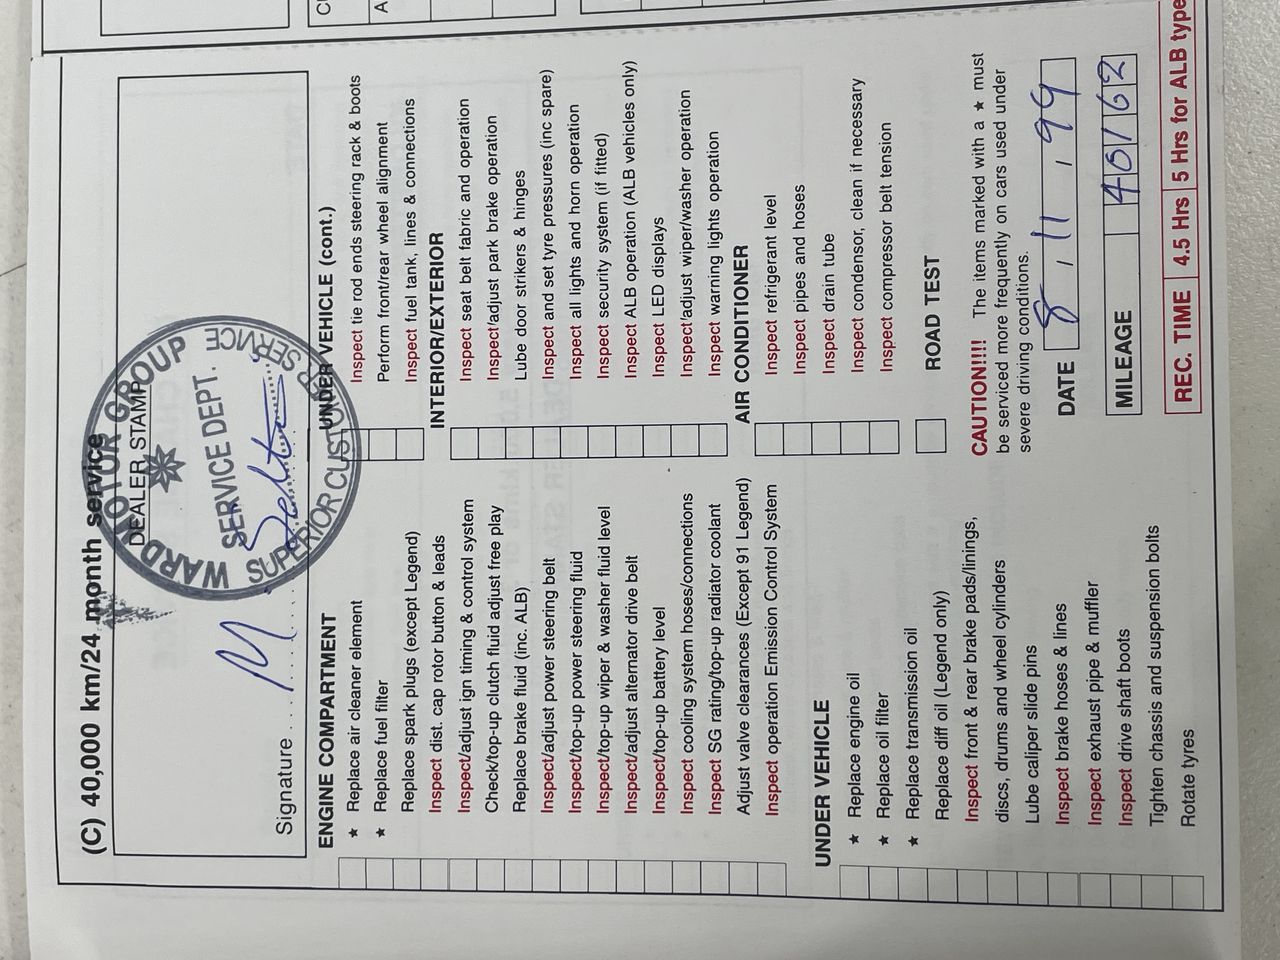 (C) 40,000 km/24 month service
DEALER STAMP
WARD MOTOR GROUP
SERVICE DEPT.
SUPERIOR CUSTOMER SERVICE
SERVICE
Signature
ENGINE COMPARTMENT
★ Replace air cleaner element
★ Replace fuel filter
Replace spark plugs (except Legend)
Inspect dist. cap rotor button & leads
Inspect/adjust ign timing & control system
Check/top-up clutch fluid adjust free play
Replace brake fluid (inc. ALB)
Inspect/adjust power steering belt
Inspect/top-up power steering fluid
Inspect/top-up wiper & washer fluid level
Inspect/adjust alternator drive belt
Inspect/top-up battery level
Inspect cooling system hoses/connections
Inspect SG rating/top-up radiator coolant
Adjust valve clearances (Except 91 Legend)
Inspect operation Emission Control System
UNDER VEHICLE
★ Replace engine oil
★ Replace oil filter
★ Replace transmission oil
Replace diff oil (Legend only)
Inspect front & rear brake pads/linings,
discs, drums and wheel cylinders
Lube caliper slide pins
Inspect brake hoses & lines
Inspect exhaust pipe & muffler
Inspect drive shaft boots
Tighten chassis and suspension bolts
Rotate tyres
UNDER VEHICLE (cont.)
Inspect tie rod ends steering rack & boots
Perform front/rear wheel alignment
Inspect fuel tank, lines & connections
INTERIOR/EXTERIOR
Inspect seat belt fabric and operation
Inspect/adjust park brake operation
Lube door strikers & hinges
Inspect and set tyre pressures (inc spare)
Inspect all lights and horn operation
Inspect security system (if fitted)
Inspect ALB operation (ALB vehicles only)
Inspect LED displays
Inspect/adjust wiper/washer operation
Inspect warning lights operation
AIR CONDITIONER
Inspect refrigerant level
Inspect pipes and hoses
Inspect drain tube
Inspect condensor, clean if necessary
Inspect compressor belt tension
ROAD TEST
CAUTION!!!! The items marked with a ★ must
be serviced more frequently on cars used under
severe driving conditions.
DATE 8 , 11 , 99
MILEAGE 40162
REC. TIME 4.5 Hrs 5 Hrs for ALB type